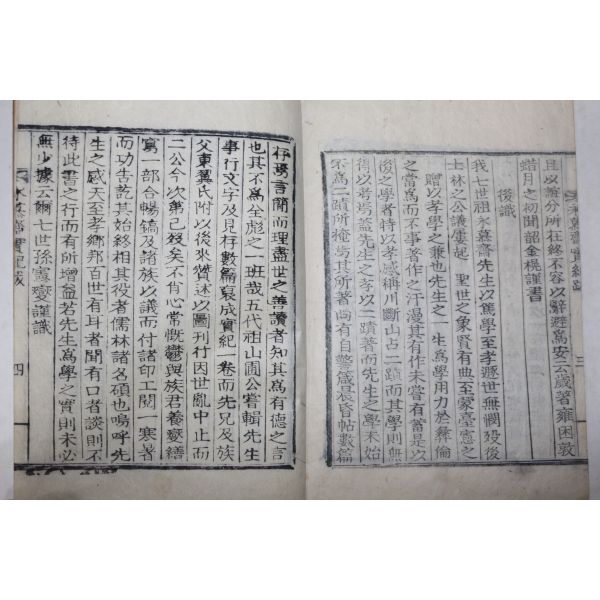 且以職分所在終不容以辭避爲安云歲著雍困敦
蜡月之初聞韶金㮨謹書
後識
我七世祖永慕齋先生以篤學至孝遯世無憫歿後
士林之公議屢起 聖世之象賢有典至蒙臺憲之
贈以孝學之兼也先生之一生爲學用力於彛倫
之當爲而不事著作之汗漫其有作未嘗有蓄是以
後之學者特以孝感稱川斷山占二蹟而其學則無
得以考焉蓋先生之孝以二蹟著而先生之學未始
不爲二蹟所掩焉其所著尙有自警箴晨昏帖數篇
存焉言簡而理盡世之善讀者知其爲有德之言
也其不爲全彪之一班哉五代祖山園公嘗輯先生
事行文字及見存數篇裒成實紀一卷而先兄及族
父東翼氏附以後來贊述以圖刊行因世亂中止而
二公今次第已歿矣不肖心常慨鬱與族君養燮繕
寫一部合暢鎬及諸族以議而付諸印工閱一寒暑
而功告訖其始終相其役者儒林諸名碩也嗚呼先
生之感天至孝鄕邦百世有耳者聞有口者談則不
待此書之行而有所增益若先生爲學之實則未必
無少據云爾七世孫憲燮謹識